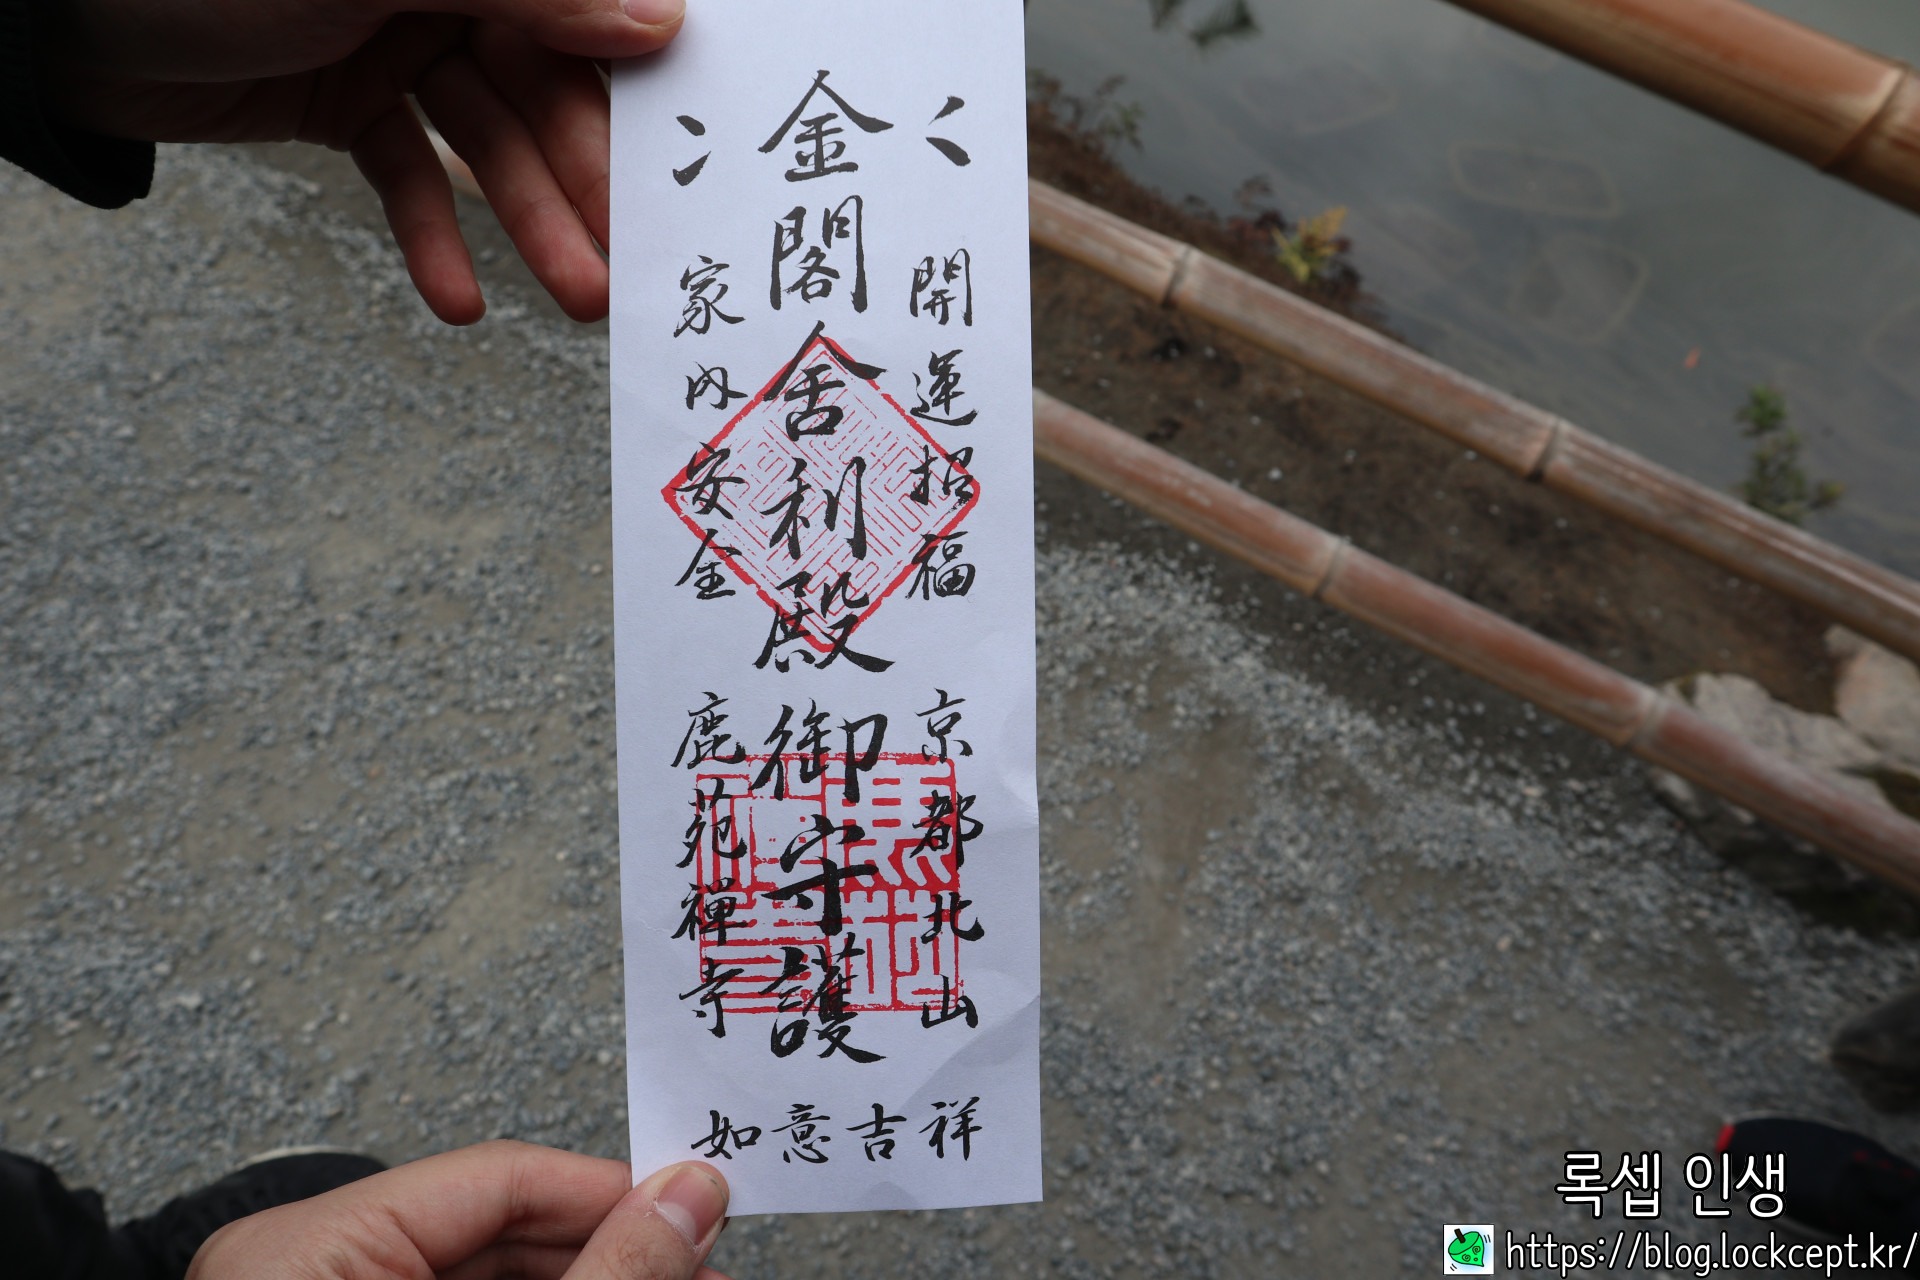 開運招福
京都北山
金閣舎利殿
御守護
家内安全
鹿苑禅寺
如意吉祥
록셉 인생
https://blog.lockcept.kr/